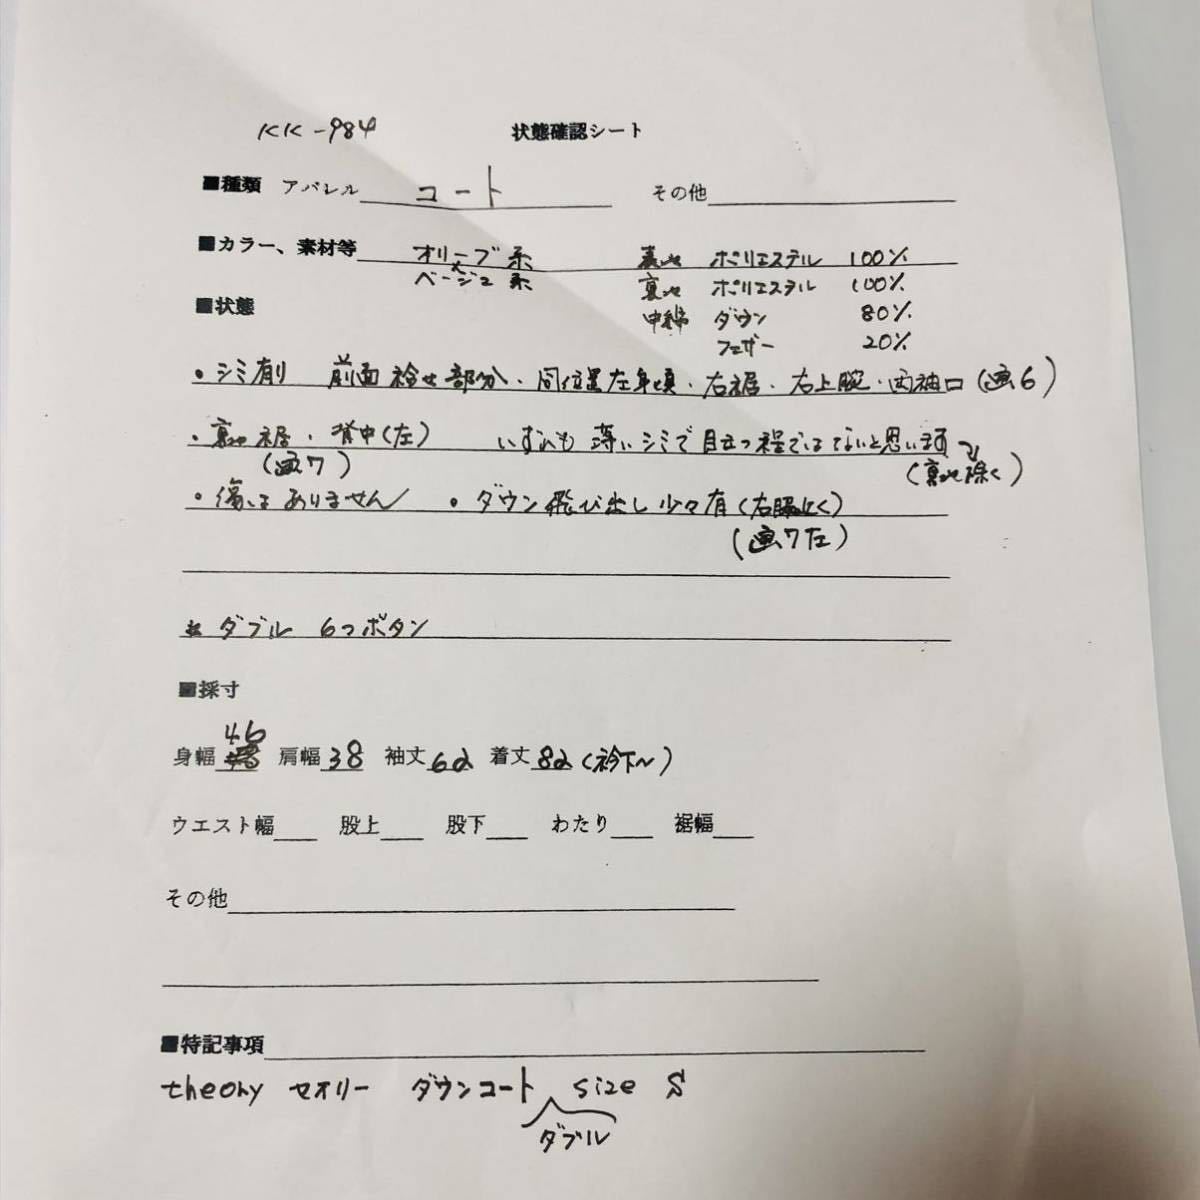 KK-984 状態確認シート
■種類 アパレル コート その他
■カラー、素材等 オリーブ系 表地 ポリエステル 100%
ベージュ系 裏地 ポリエステル 100%
■状態 中綿 ダウン 80%
フェザー 20%
・シミ有り 前面 袷せ部分・同位置左身頃・右裾・右上腕・両袖口(画6)
・裏地裾・背中(左) いずれも薄いシミで目立つ程ではないと思います
(画7) (裏地除く)
・傷はありません ・ダウン飛び出し少々有(右脇近く)
(画7左)
※ダブル 6つボタン
■採寸
46
身幅 肩幅 38 袖丈 62 着丈 82 (衿下〜)
ウエスト幅 股上 股下 わたり 裾幅
その他
■特記事項
theory セオリー ダウンコート size S
ダブル